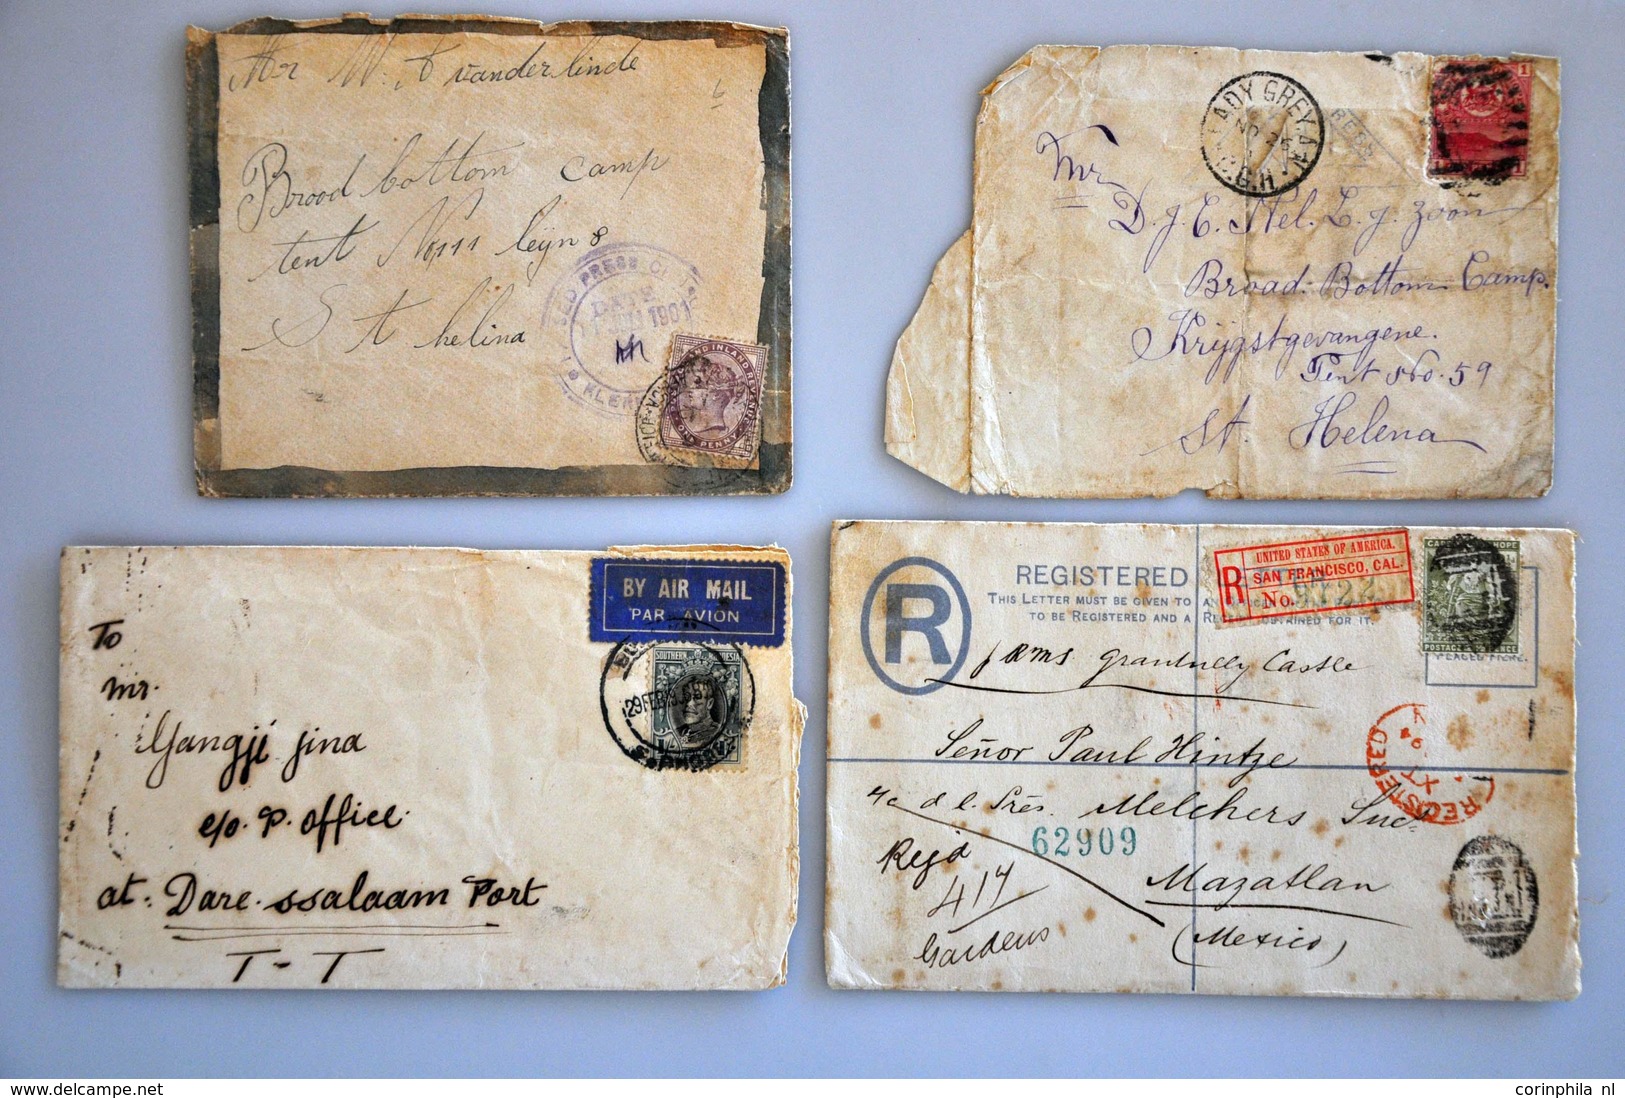 Mr W. A vanderlinde
Brood bottom camp
tent No 111 leijn 8
St helina
PRESS
DATE
1901
KLERK
AND INLAND REVENUE
ONE PENNY
LADY GREY
NO 25
C.G.H
1
1 1
Mr
D. J. C. Nel. L. J. zoon
Broad-Bottom Camp.
Krijgstgevangene.
Tent No. 59
St. Helena
BY AIR MAIL
PAR AVION
SOUTHERN RHODESIA
29 FEB
To
mr.
Gangji jina
c/o. P. office
at. Dare-ssalaam Port
T - T
R
REGISTERED
THIS LETTER MUST BE GIVEN TO AN
TO BE REGISTERED AND A RECEIPT OBTAINED FOR IT.
R
UNITED STATES OF AMERICA.
SAN FRANCISCO, CAL.
No.
CAPE HOPE
POSTAGE
PLACED HERE.
p RMS Grantully Castle
Señor Paul Hintze
c/o d l. Sres. Melchers Sucs
REGISTERED
62909
Regd
417
Gardens
Mazatlan
(Mexico)
corinphila nl